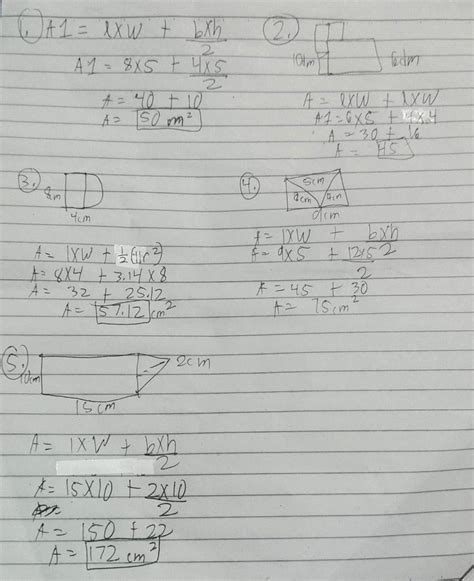 1. A1 = lxw + bxh/2
A1 = 8x5 + 4x5/2
A = 40 + 10
A = 50 cm²
2.
10cm
A = lxw + lxw
A1 = 6x5 + 4x4
A = 30 + 16
A = 45
3.
8cm
4cm
A = lxw + 1/2(πr²)
A = 8x4 + 3.14x8
A = 32 + 25.12
A = 57.12 cm²
4.
5cm
9cm
A = lxw + bxh
A = 9x5 + 12x5 2/2
A = 45 + 30
A = 75cm²
5.
10cm
2cm
15cm
A = lxw + bxh/2
A = 15x10 + 2x10/2
A = 150 + 22
A = 172 cm²